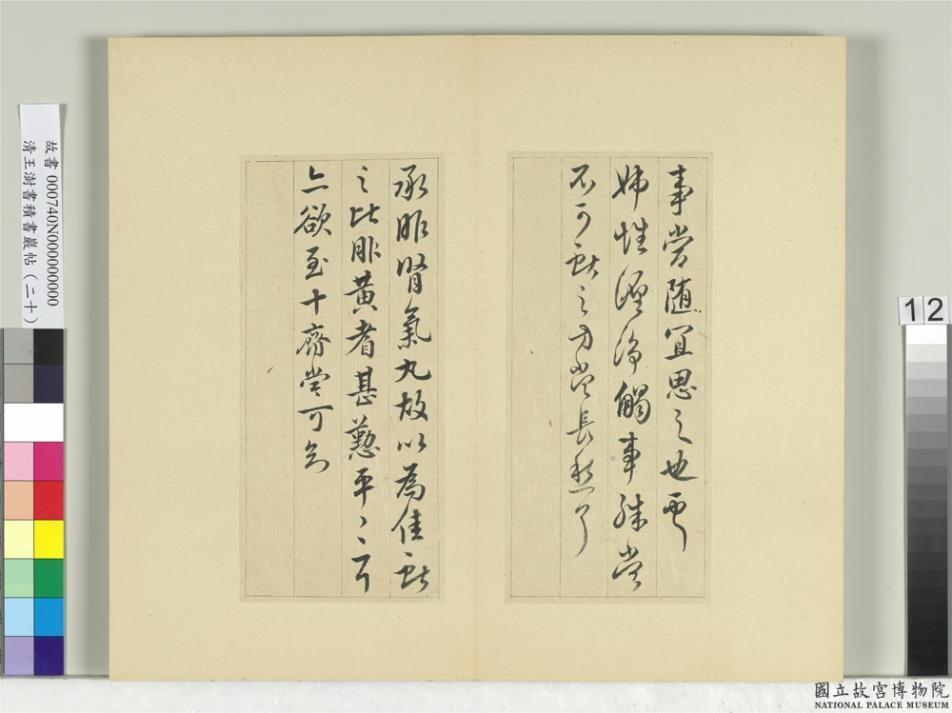 事當隨宜思之也
姊性纏綿觸事殊當
不可獻之方當長愁耳
承服腎氣丸故以為佳獻
之比服黃耆甚懃平平耳
亦欲至十齊當可知
故書 000740N000000000
清王澍書積書巖帖(二十)
12
國立故宮博物院
NATIONAL PALACE MUSEUM